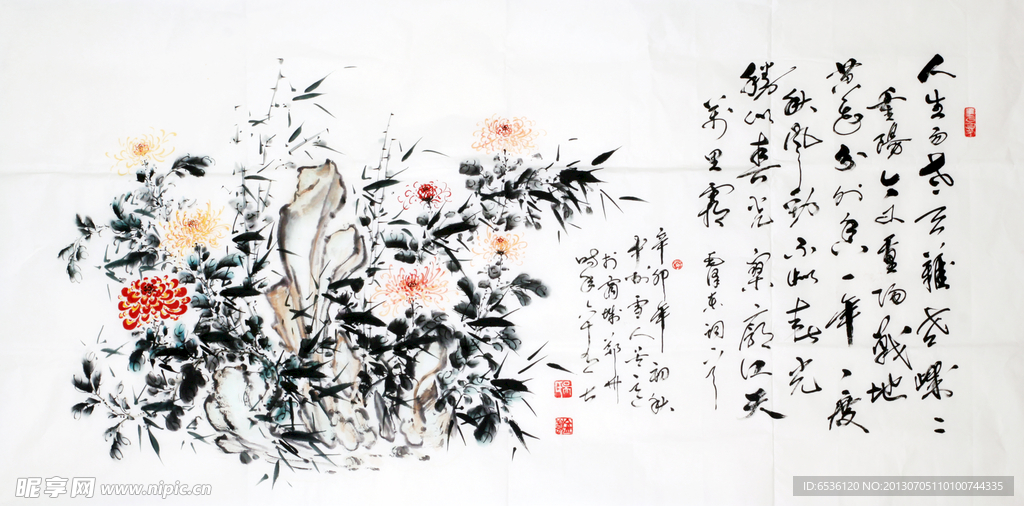 人生易老天難老歲々
重陽今又重陽戰地
黄花分外香一年一度
秋風勁不似春光
勝似春光寥廓江天
萬里霜 毛澤東詞
辛卯年初秋
昵享网 www.nipic.cn
ID:6536120 NO:20130705110100744335